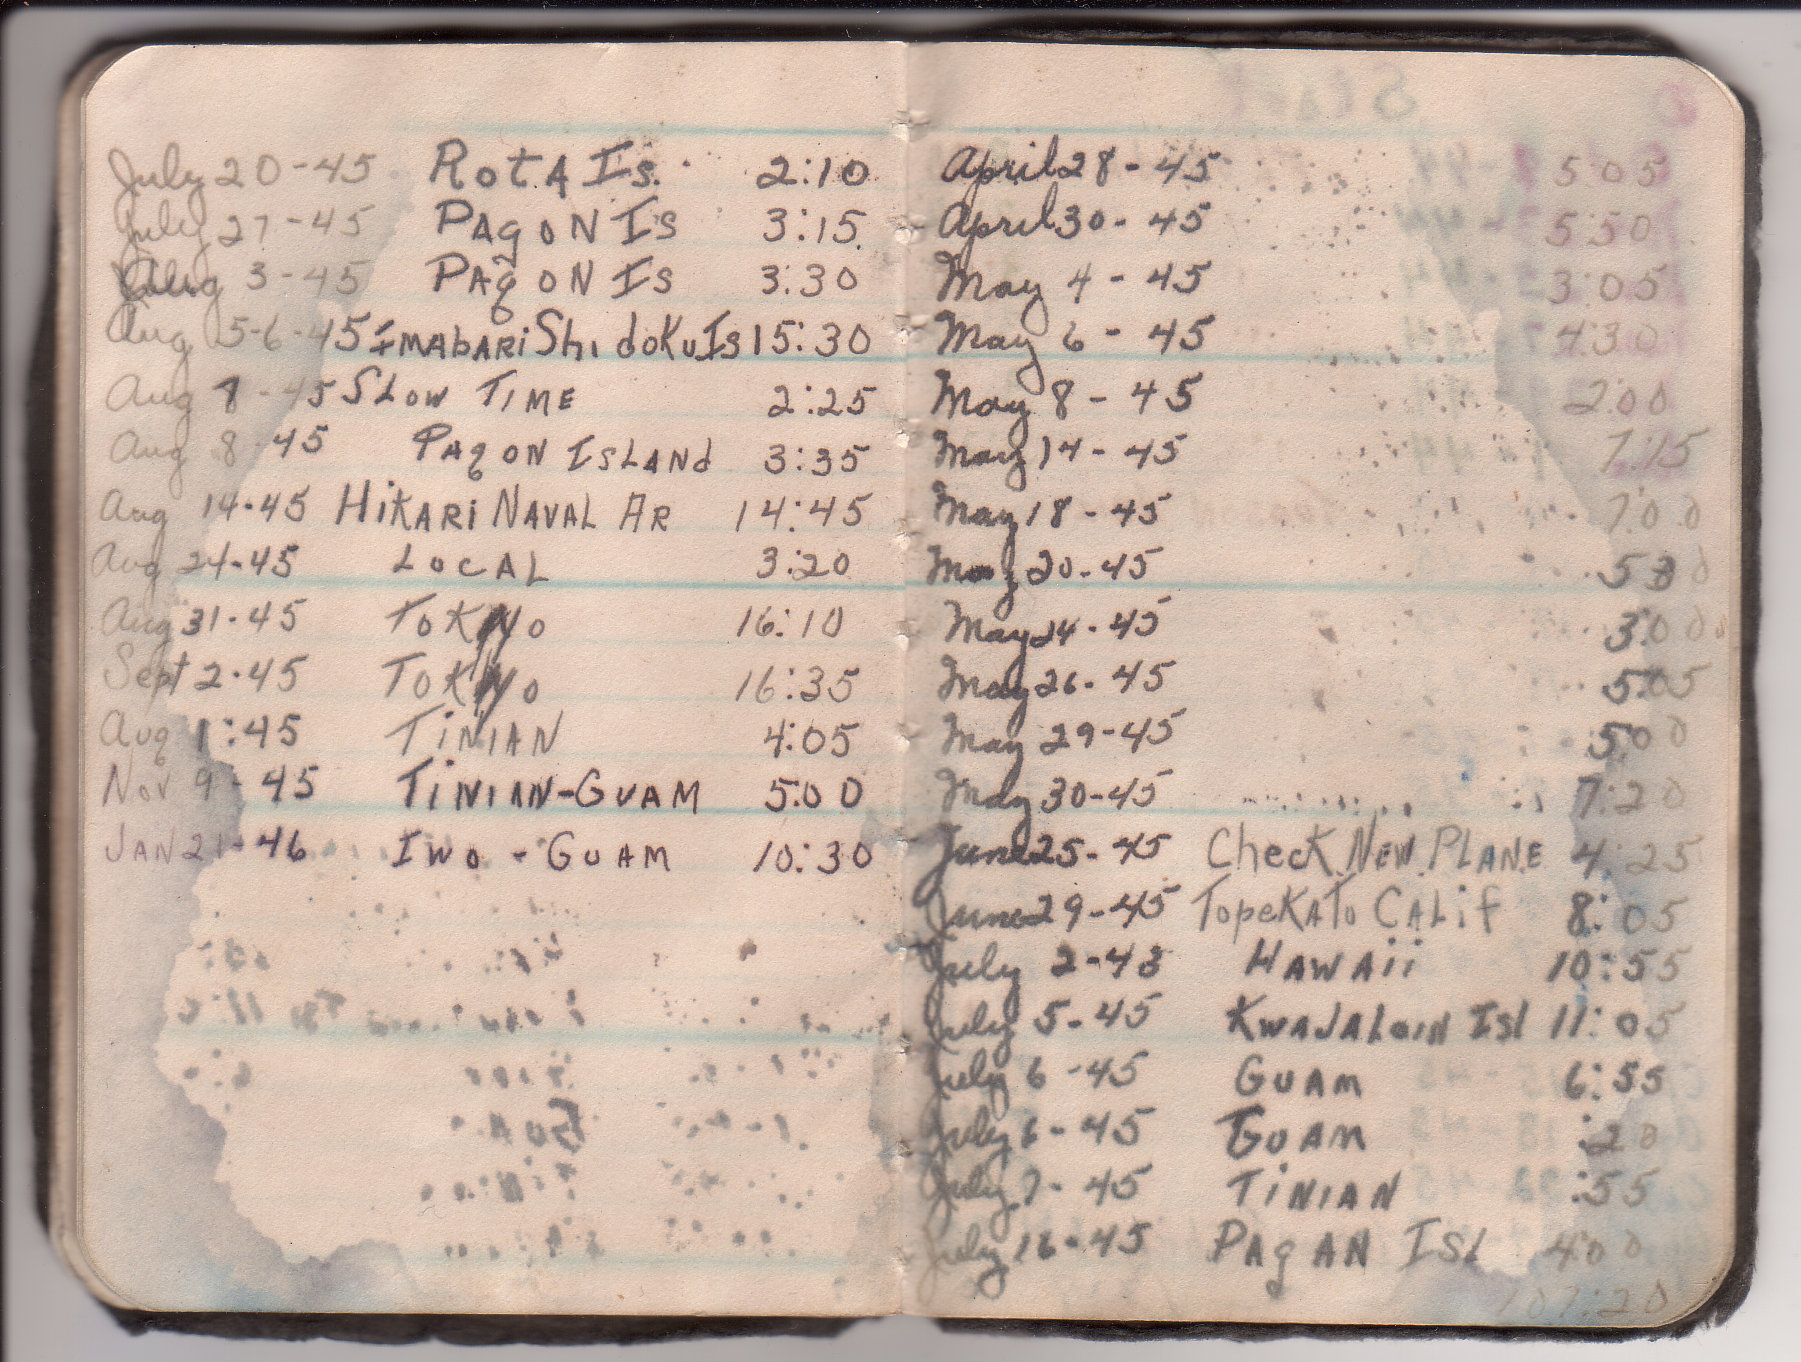 July 20-45 RotA Is. 2:10
July 27-45 PAgON Is 3:15
Aug 3-45 PAgON Is 3:30
Aug 5-6-45 ImAbARi Shi doKu Is 15:30
Aug 7-45 SLOW TIME 2:25
Aug 8-45 PAgON IsLANd 3:35
Aug 14-45 HiKARi NAVAL AR 14:45
Aug 24-45 LOCAL 3:20
Aug 31-45 ToKyo 16:10
Sept 2-45 ToKyo 16:35
Aug 1:45 TiNIAN 4:05
Nov 9-45 TiNIAN-GUAM 5:00
JAN 21-46 IWO - GUAM 10:30
April 28-45 5:05
April 30-45 5:50
May 4-45 3:05
May 6-45 4:30
May 8-45 2:00
May 14-45 7:15
May 18-45 7:00
May 20-45
May 24-45 3:00
May 26-45 5:05
May 29-45 5:00
May 30-45 7:20
June 25-45 Check NEW PLANE 4:25
June 29-45 TopeKA To CALif 8:05
July 2-45 HAWAii 10:55
July 5-45 KWAJALOIN ISl 11:05
July 6-45 GUAM 6:55
July 6-45 GUAM :20
July 7-45 TiNIAN :55
July 16-45 PAgAN ISL 4:00
107:20